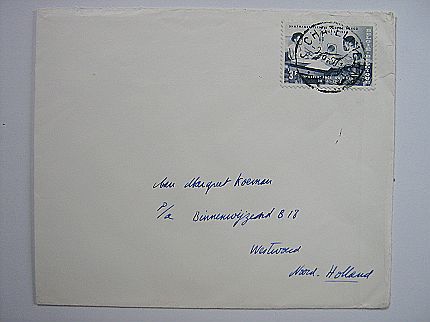 CHATE
Aan Margreet Koeman
P/a Binnenwijzend B 18
Westwoud
Noord. Holland